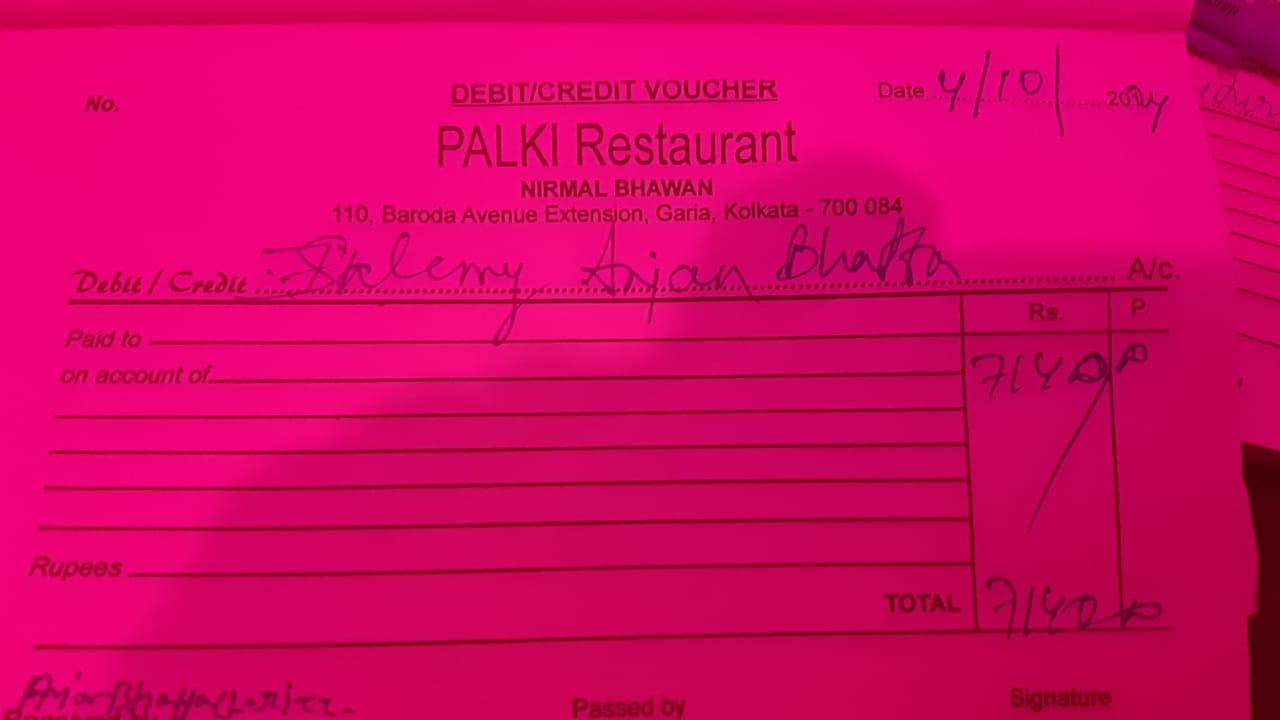 No.
DEBIT/CREDIT VOUCHER
Date 4/10/2024
PALKI Restaurant
NIRMAL BHAWAN
110, Baroda Avenue Extension, Garia, Kolkata - 700 084
Debit / Credit Anjan Bhatta A/c.
Rs. P.
Paid to
on account of 7140
Rupees
TOTAL 7140
Anjan Bhattacharjee.
Received by Passed by Signature